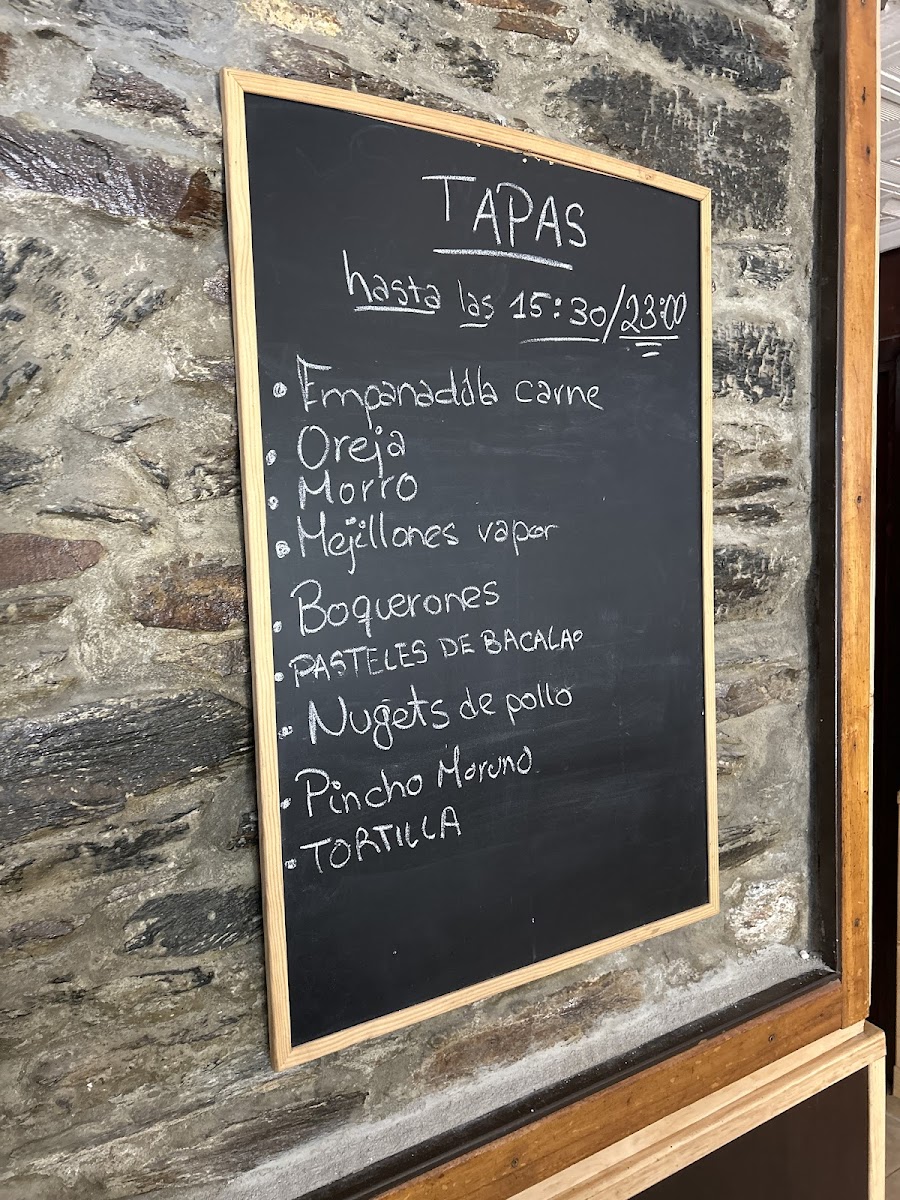 TAPAS
hasta las 15:30/23:00
• Empanadilla carne
• Oreja
• Morro
• Mejillones vapor
• Boquerones
• PASTELES DE BACALAO
• Nugets de pollo
• Pincho Moruno
• TORTILLA